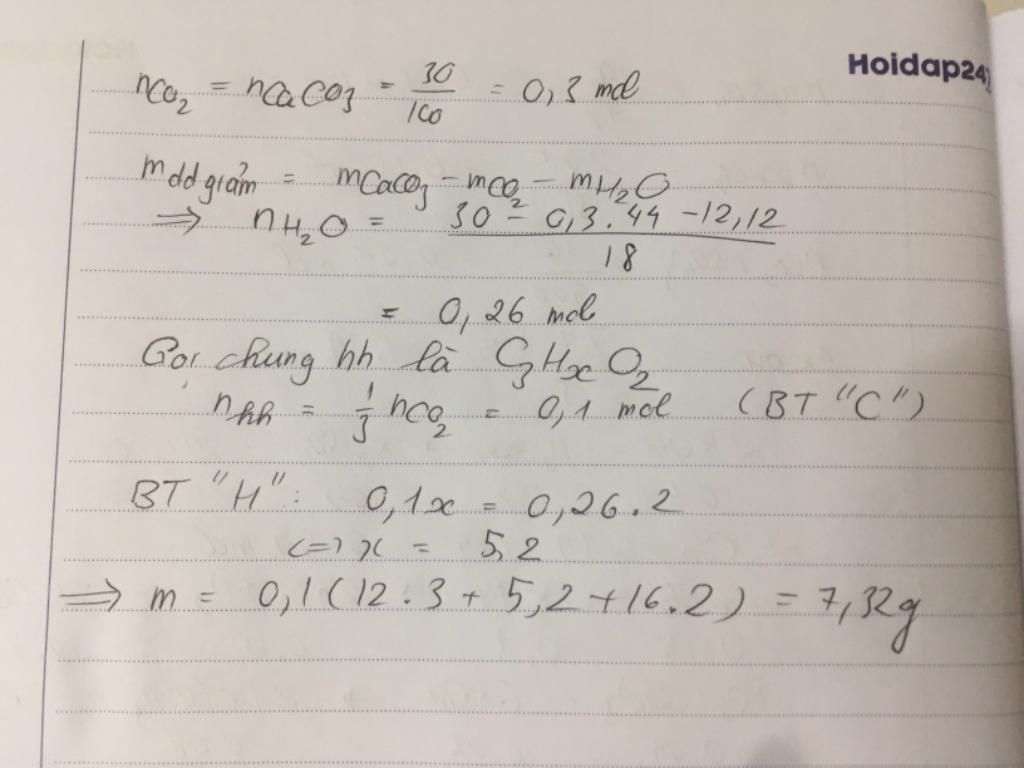 Hoidap247
nCO2 = nCaCO3 = 30/100 = 0,3 mol
mdd giảm = mCaCO3 - mCO2 - mH2O
=> nH2O = (30 - 0,3.44 - 12,12)/18
= 0,26 mol
Gọi chung hh là C3HxO2
nhh = 1/3 nCO2 = 0,1 mol (BT "C")
BT "H": 0,1x = 0,26.2
<=> x = 5,2
=> m = 0,1(12.3 + 5,2 + 16.2) = 7,32g